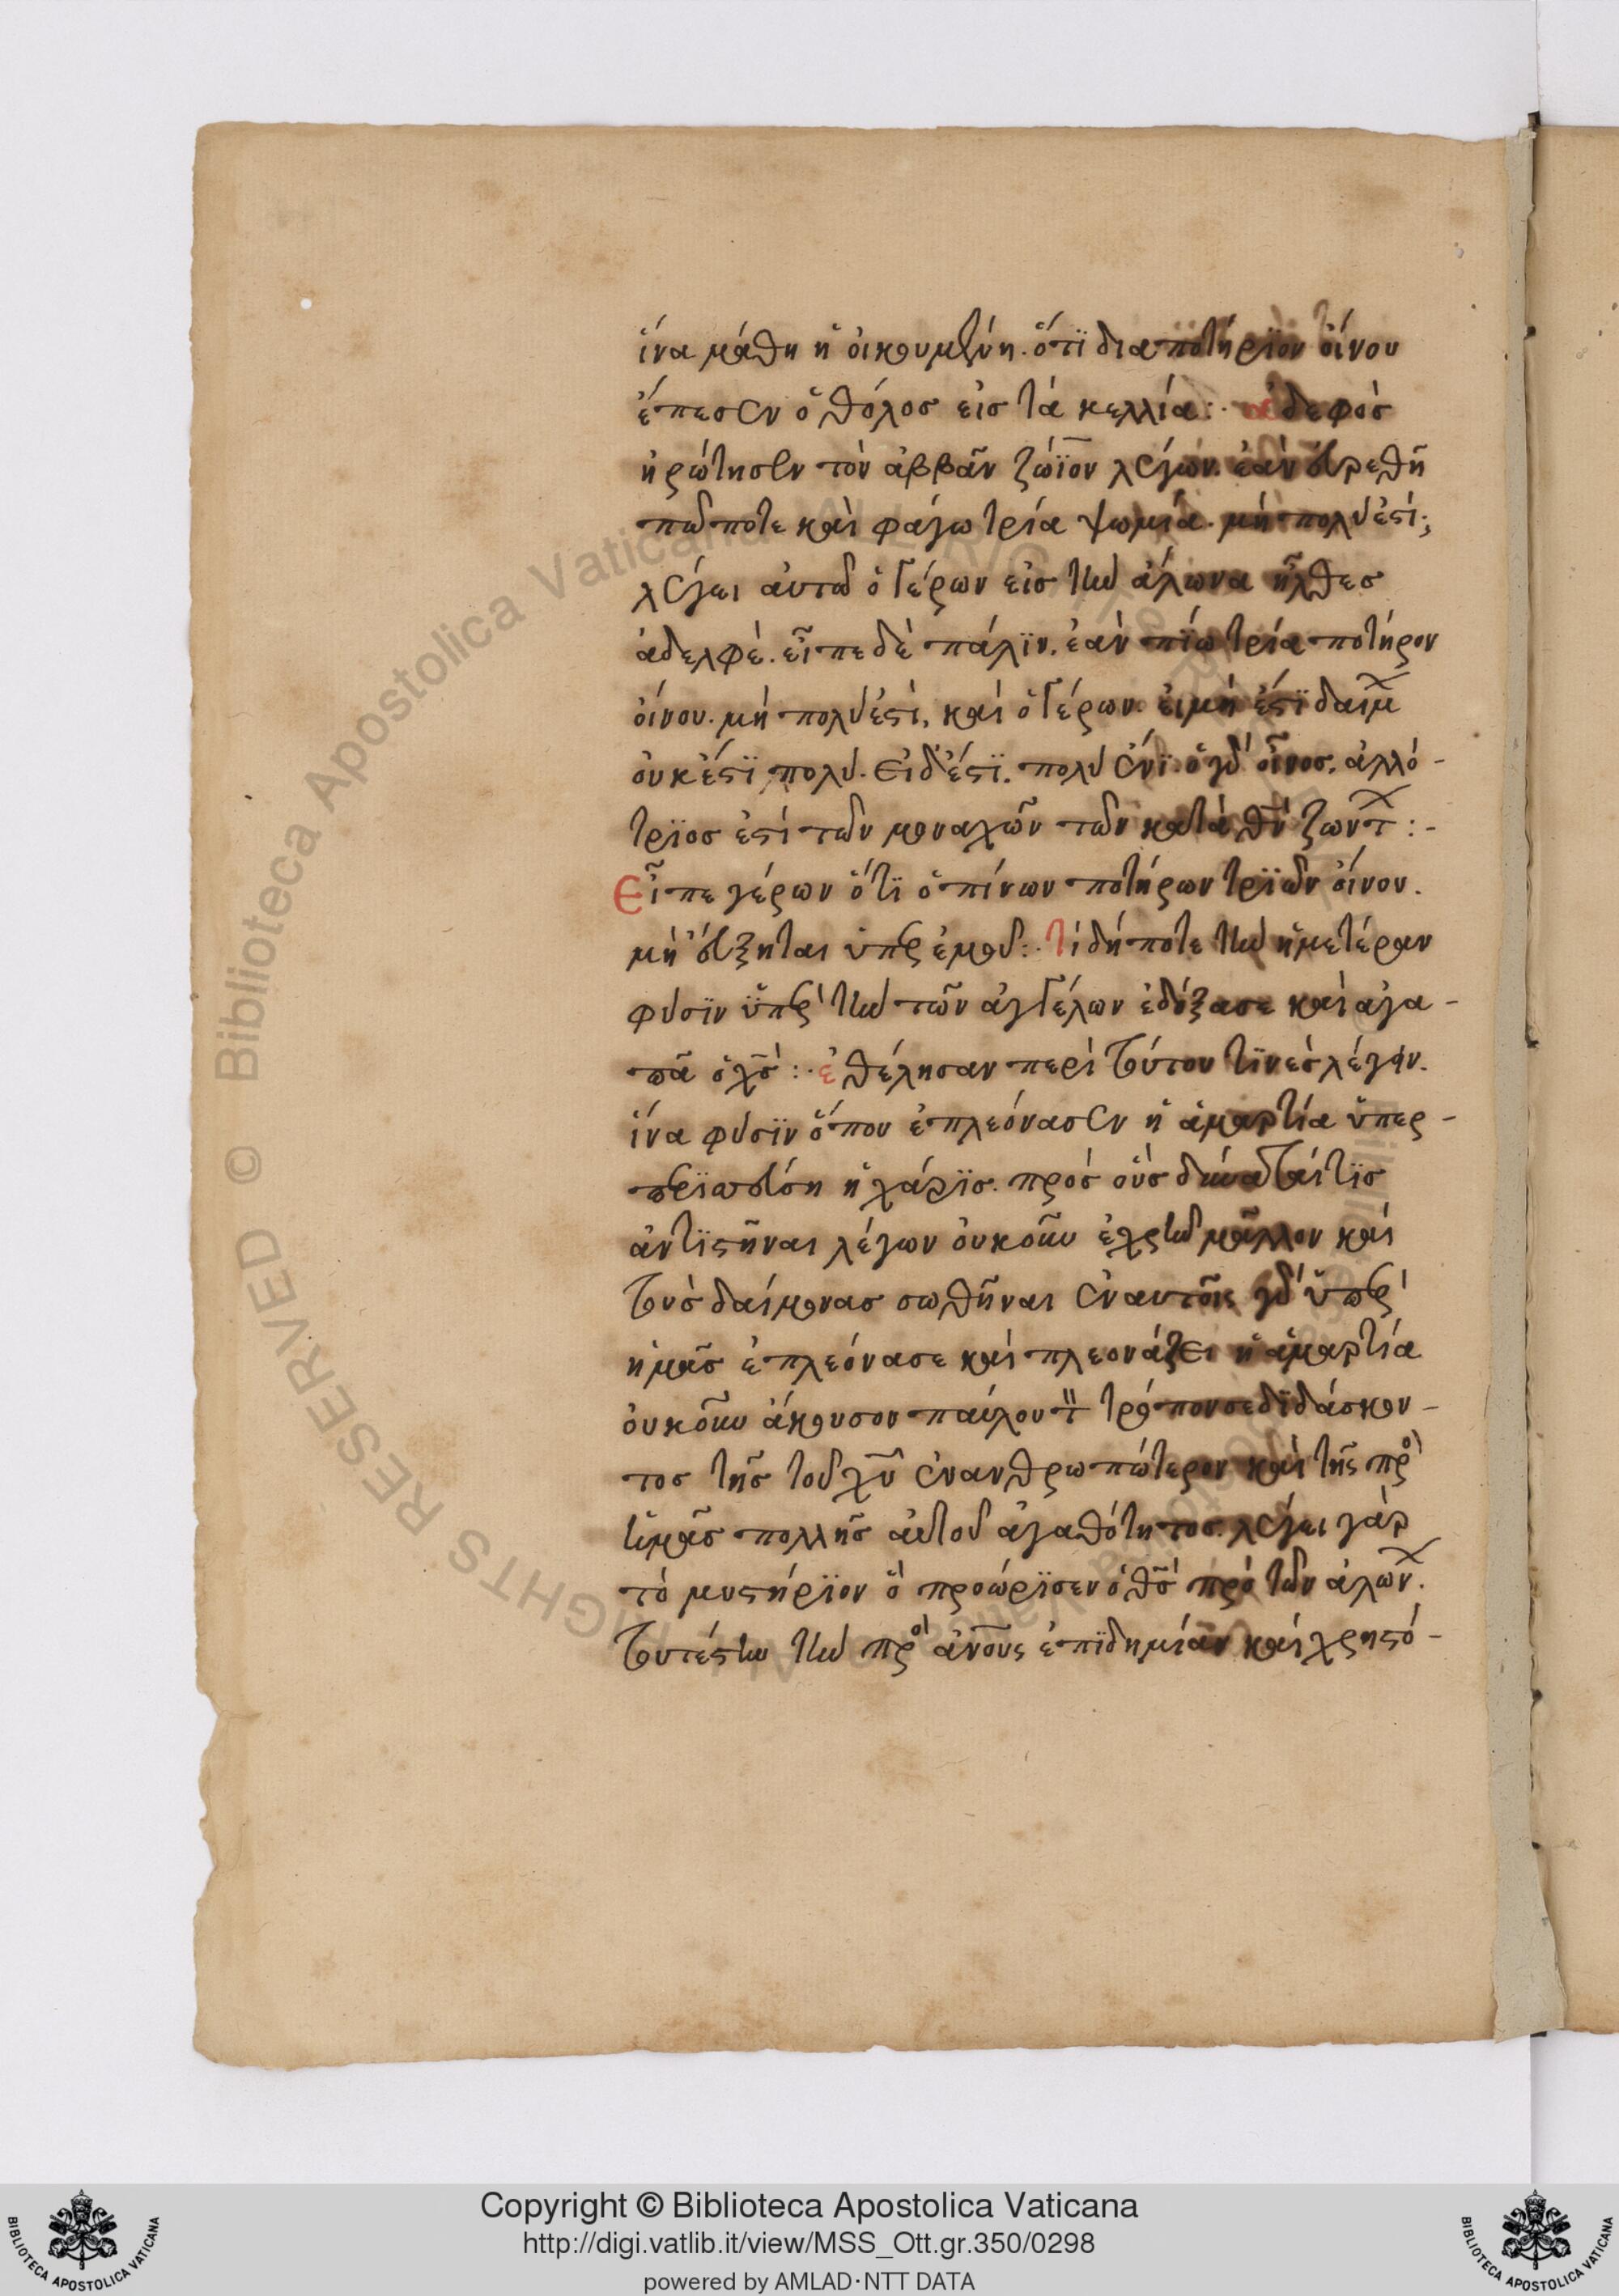 ἵνα μάθη ἡ οἰκουμένη. ὅτϊ δια ποτήρϊον οἴνου
ἔπεσεν ὁ θόλος εἰς τὰ κελλία:· ἀδεφὸς
ἠρώτησεν τὸν ἀββᾶν ζώϊον λέγων. ἐὰν εὑρεθῆ
πῶποτε καὶ φάγω τρία ψωμία. μὴ πολύ ἐστί;
λέγει αὐτῶ ὁ γέρων εἰς τὴν ἅλωνα ἦλθες
ἀδελφέ. εἶπε δὲ πάλϊν. ἐὰν πΐω τρία ποτήρον
οἴνου. μὴ πολύ ἐστὶ, καὶ ὁ γέρων. εἰ μὴ ἔστϊ δαίμ
οὐκ ἔστϊ πολύ. εἰ δ' ἔστϊ. πολύ ἐνϊ. ὁ γὰρ οἶνος. ἀλλό-
τρϊος ἐστί τῶν μοναχῶν τῶν κατὰ θν ζωντ:-
Εἶπε γέρων ὅτϊ ὁ πίνων ποτήρων τρϊῶν οἴνου.
μὴ εὔξηται ὑπὲρ ἐμοῦ:· Τί δήποτε τὴν ἡμετέραν
φύσϊν ὑπὲρ τὴν τῶν ἀγγέλων ἐδόξασε καὶ ἀγα-
πᾶ ὁ χς:· ἐθέλησαν περὶ τούτου τϊνὲς λέγειν.
ἵνα φύσϊν ὅπου ἐπλεόνασεν ἡ ἁμαρτία ὑπερ-
περϊσσεύση ἡ χάρϊς. πρὸς οὓς δύναταί τϊς
ἀντϊστῆναι λέγων οὐκοῦν ἐχρῆν μᾶλλον καὶ
τοὺς δαίμονας σωθῆναι ἐν αὐτοῖς γὰρ ὑπὲρ
ἡμᾶς ἐπλεόνασε καὶ πλεονάζει ἡ ἁμαρτία
οὐκοῦν ἄκουσον παύλου τ τρόπον σε δϊδάσκον-
τος τῆς τοῦ χυ ἐνανθρωπώτερον καὶ τῆς πρ
ἡμᾶς πολλῆς αὐτοῦ ἀγαθότητος. λέγει γὰρ
τὸ μυστήρϊον ὃ προώρϊσεν ὁ θς πρὸ τῶν αἰων.
τουτέστιν τὴν πρ ἀνους ἐπϊδημίαν καὶ χρηστό-
Copyright © Biblioteca Apostolica Vaticana
http://digi.vatlib.it/view/MSS_Ott.gr.350/0298
powered by AMLAD·NTT DATA